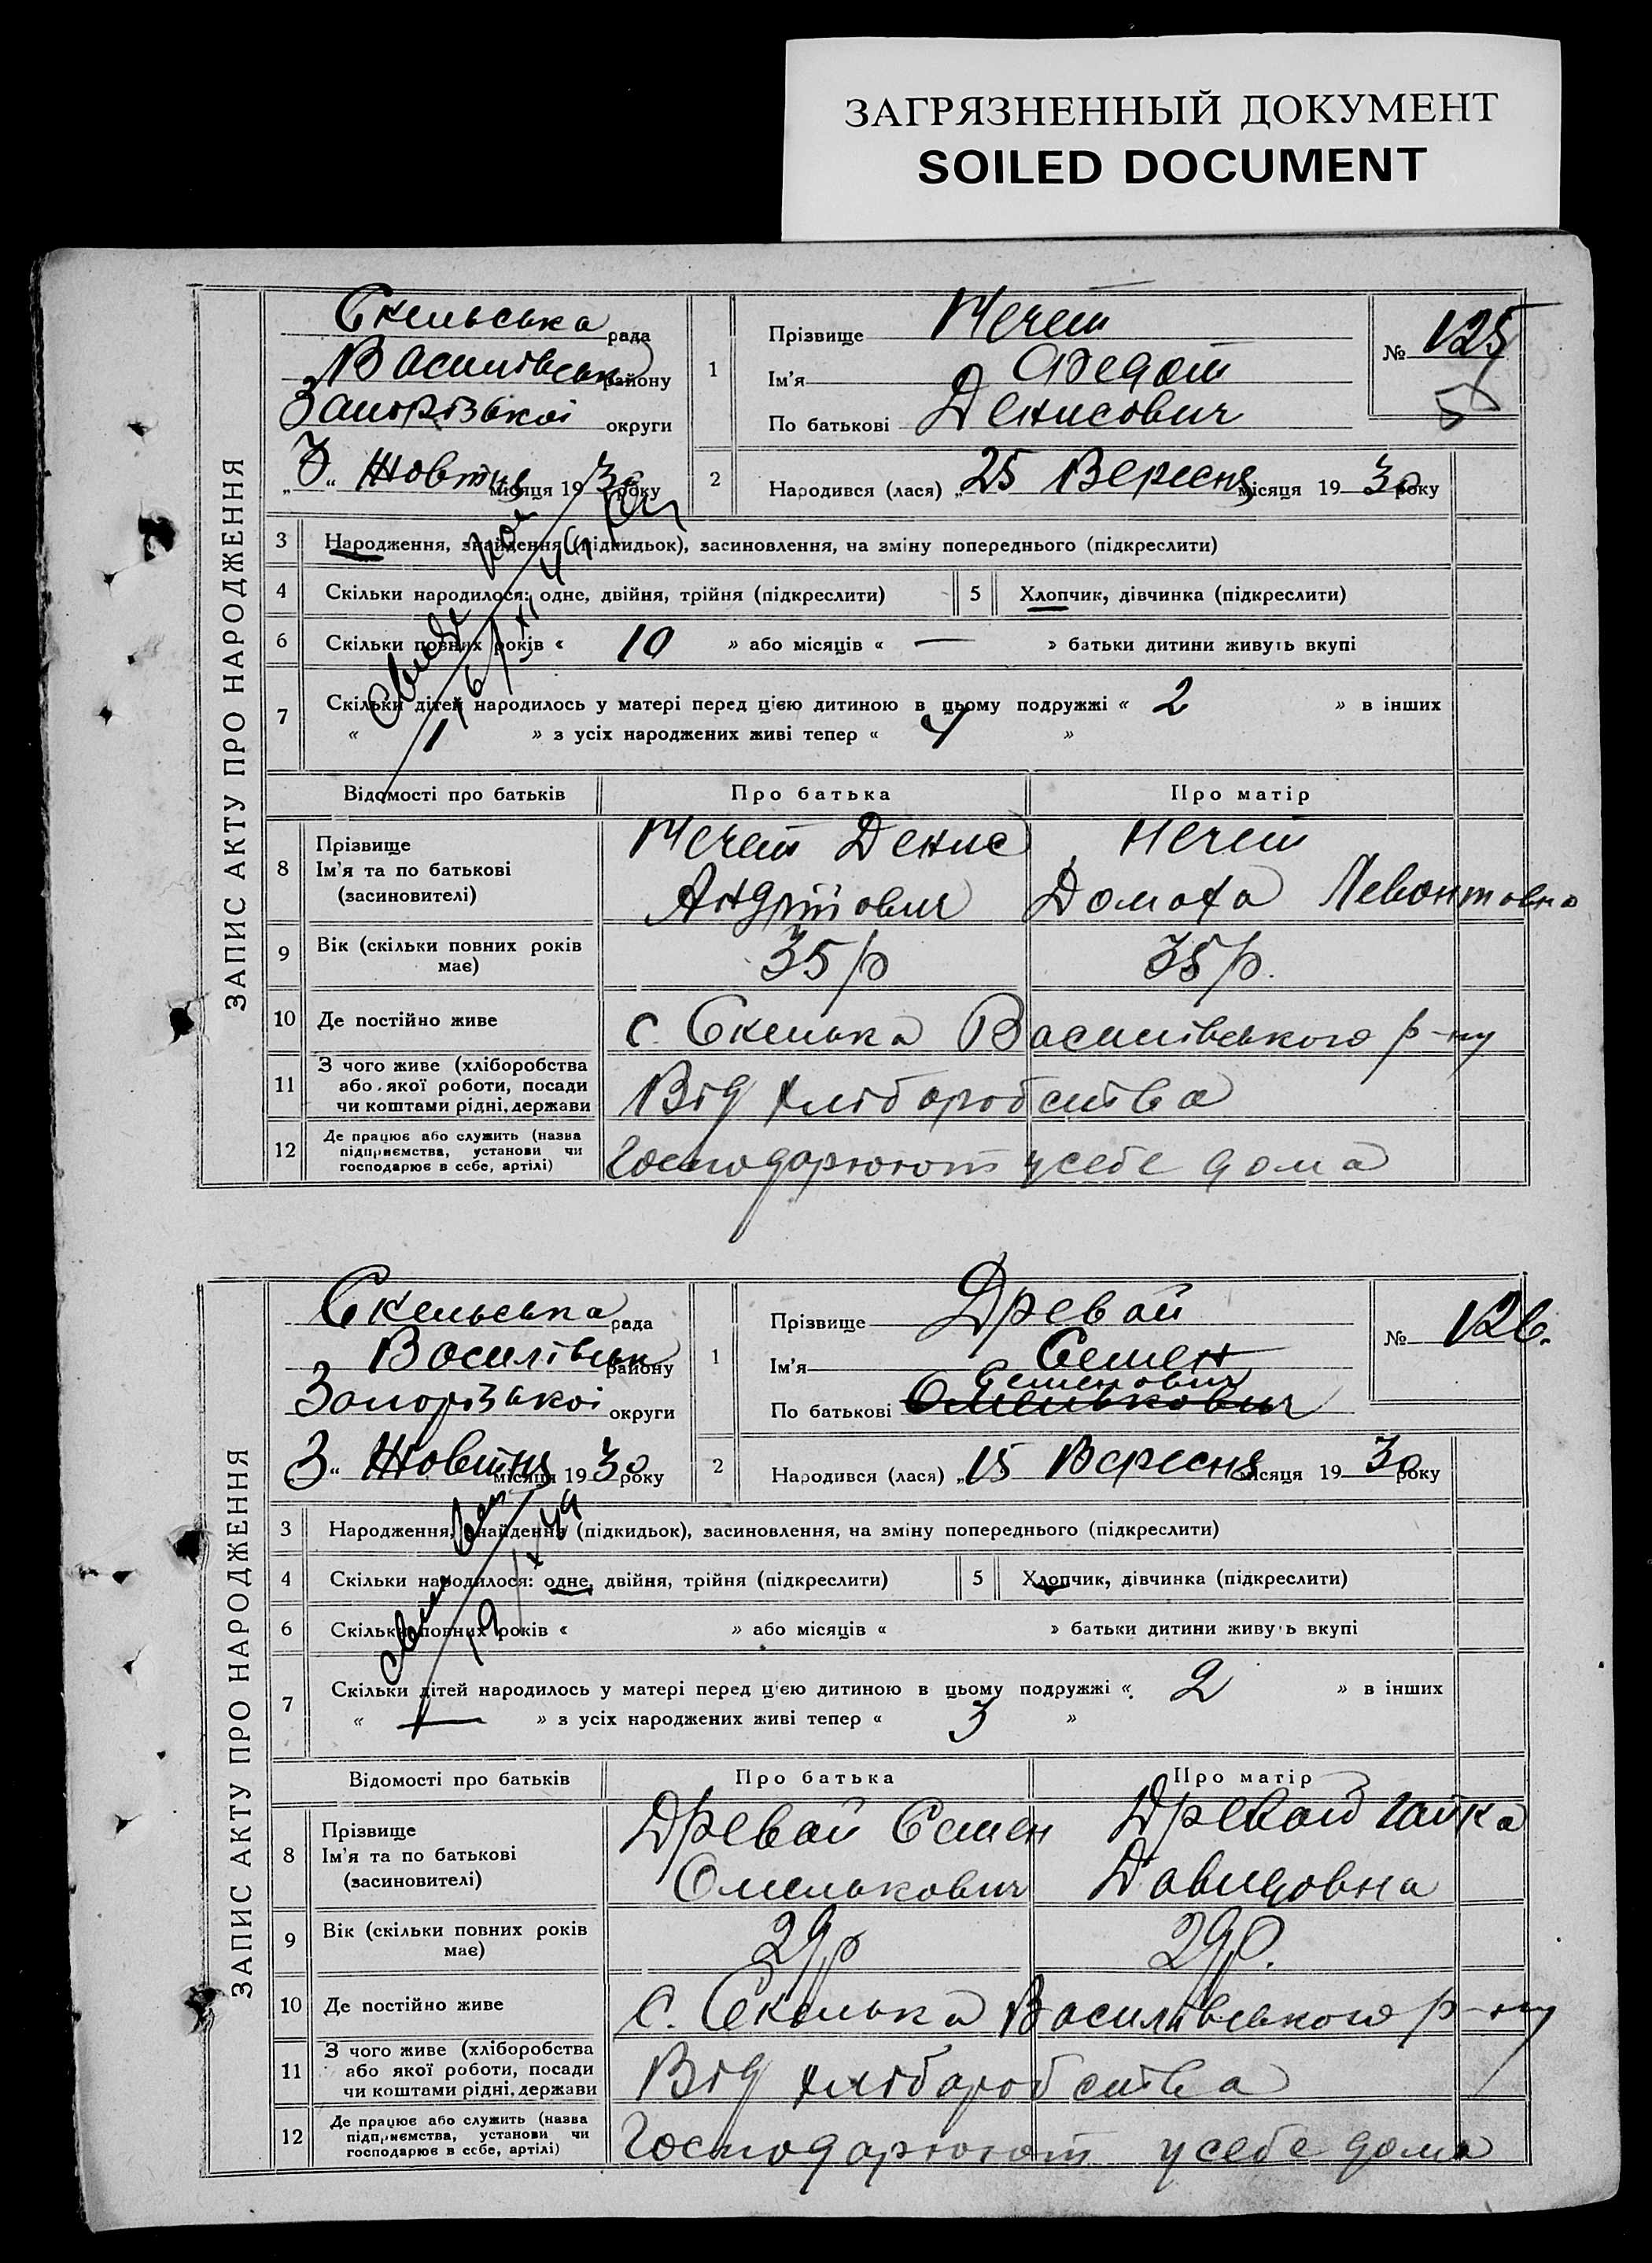 ЗАГРЯЗНЕННЫЙ ДОКУМЕНТ
SOILED DOCUMENT
ЗАПИС АКТУ ПРО НАРОДЖЕННЯ
Скельська рада
Василівськ району
Запорізької округи
„3“ Жовтня місяця 1930 року
1
Прізвище Нечет
Ім'я Федот
По батькові Денисович
№ 125
2
Народився (лася) „25 Вересня місяця 1930 року
3 Народження, знайдення (підкидьок), засиновлення, на зміну попереднього (підкреслити)
4 Скільки народилося: одне, двійня, трійня (підкреслити)
5 Хлопчик, дівчинка (підкреслити)
6 Скільки повних років « 10 » або місяців « — » батьки дитини живуть вкупі
7 Скільки дітей народилось у матері перед цією дитиною в цьому подружжі « 2 » в інших
« » з усіх народжених живі тепер « »
Відомості про батьків Про батька Про матір
8 Прізвище
Ім'я та по батькові
(засновителі)
Нечет Денис
Андрійович
Нечет
Домаха Левонтовна
9 Вік (скільки повних років має)
35 р
35 р.
10 Де постійно живе
с. Скелька Василівського р-ну
11 З чого живе (хліборобства
або якої роботи, посади
чи коштами рідні, держави
Від хліборобства
12 Де працює або служить (назва
підприємства, установи чи
господарює в себе, артілі)
Господарюют у себе дома
ЗАПИС АКТУ ПРО НАРОДЖЕННЯ
Скельська рада
Василівськ району
Запорізької округи
3“ Жовтня місяця 1930 року
1
Прізвище Древай
Ім'я Семен
Семенович
По батькові Омелькович
№ 126.
2
Народився (лася) „15 Вересня місяця 1930 року
3 Народження, знайдення (підкидьок), засиновлення, на зміну попереднього (підкреслити)
4 Скільки народилося: одне, двійня, трійня (підкреслити)
5 Хлопчик, дівчинка (підкреслити)
6 Скільки повних років « » або місяців « » батьки дитини живуть вкупі
7 Скільки дітей народилось у матері перед цією дитиною в цьому подружжі « 2 » в інших
« — » з усіх народжених живі тепер « 3 »
Відомості про батьків Про батька Про матір
8 Прізвище
Ім'я та по батькові
(засиновителі)
Древай Семен
Омелькович
Древай
Давидовна
9 Вік (скільки повних років має)
29 р
29 р.
10 Де постійно живе
с. Скелька Василівського р-ну
11 З чого живе (хліборобства
або якої роботи, посади
чи коштами рідні, держави
Від хліборобства
12 Де працює або служить (назва
підприємства, установи чи
господарює в себе, артілі)
Господарюют у себе дома